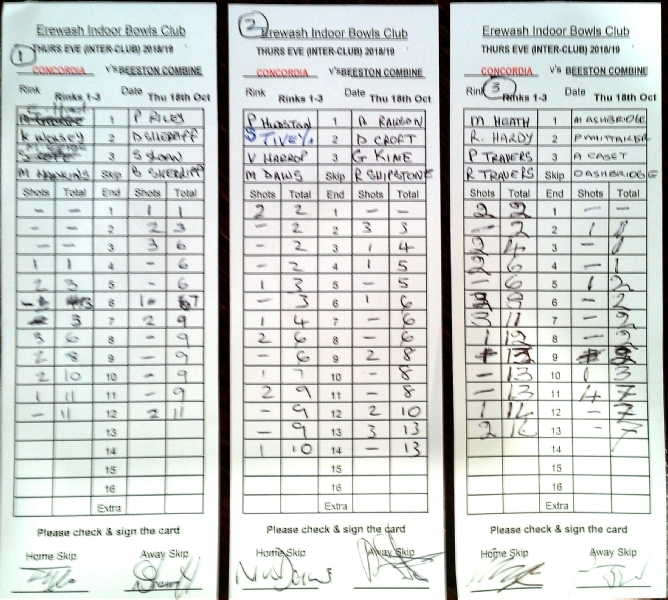 Erewash Indoor Bowls Club
1 THURS EVE (INTER-CLUB) 2018/19
CONCORDIA V's BEESTON COMBINE
Rink Rinks 1-3 Date Thu 18th Oct
1 P RILEY
K 2 D SHERRIFF
S COPE 3 S SHAW
M HAWKINS Skip B SHERRIFF
Shots Total End Shots Total
- - 1 1 1
- - 2 2 3
- - 3 3 6
1 1 4 - 6
2 3 5 - 6
- 3 6 1 7
3 7 2 9
3 6 8 - 9
2 8 9 - 9
2 10 10 - 9
1 11 11 - 9
- 11 12 2 11
13
14
15
16
Extra
Please check & sign the card
Home Skip Away Skip
2 Erewash Indoor Bowls Club
THURS EVE (INTER-CLUB) 2018/19
CONCORDIA V's BEESTON COMBINE
Rink Rinks 1-3 Date Thu 18th Oct
P HUDSTAN 1 RAWSON
S TIVEY 2 D CROFT
V HARROP 3 G KIME
M DAWS Skip R SHIPSTONE
Shots Total End Shots Total
2 2 1 - -
- 2 2 3 3
- 2 3 1 4
- 2 4 1 5
1 3 5 - 5
- 3 6 1 6
1 4 7 - 6
2 6 8 - 6
- 6 9 2 8
1 7 10 - 8
2 9 11 - 8
- 9 12 2 10
- 9 13 3 13
1 10 14 - 13
15
16
Extra
Please check & sign the card
Home Skip Away Skip
M Daws
Erewash Indoor Bowls Club
THURS EVE (INTER-CLUB) 2018/19
CONCORDIA V's BEESTON COMBINE
Rink 3 Rinks 1-3 Date Thu 18th Oct
M HEATH 1 M ASHBRIDGE
R. HARDY 2 P WHITTAKER
P TRAVERS 3 A CASEY
R TRAVERS Skip D ASHBRIDGE
Shots Total End Shots Total
2 2 1 - -
- 2 2 1 1
2 4 3 - 1
2 6 4 - 1
- 6 5 1 2
2 8 6 - 2
3 11 7 - 2
1 12 8 - 2
13 9 2
- 13 10 1 3
- 13 11 4 7
1 14 12 - 7
2 13 - 7
14
15
16
Extra
Please check & sign the card
Home Skip Away Skip